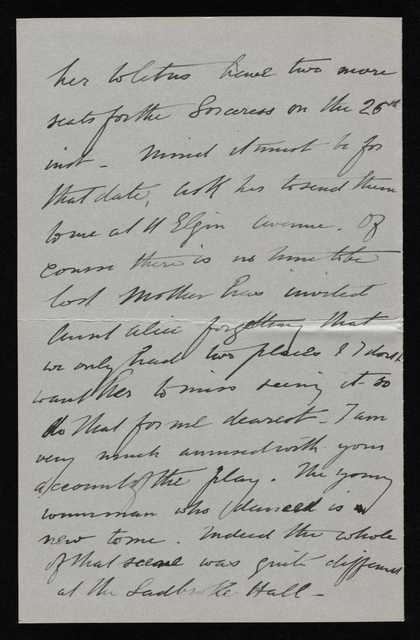 her to let us have two more
seats for the Sorceress on the 26th
inst - Mind it must be for
that date, ask her to send them
to me at 11 Elgin Avenue. Of
course there is no time to be
lost Mother has invited
Aunt Alice forgetting that
we only had two places & I don't
want her to miss seeing it so
do that for me dearest - I am
very much amused with your
account of the play. The young
woman who danced is
new to me. Indeed the whole
of that scene was quite different
at the Ladbroke Hall -